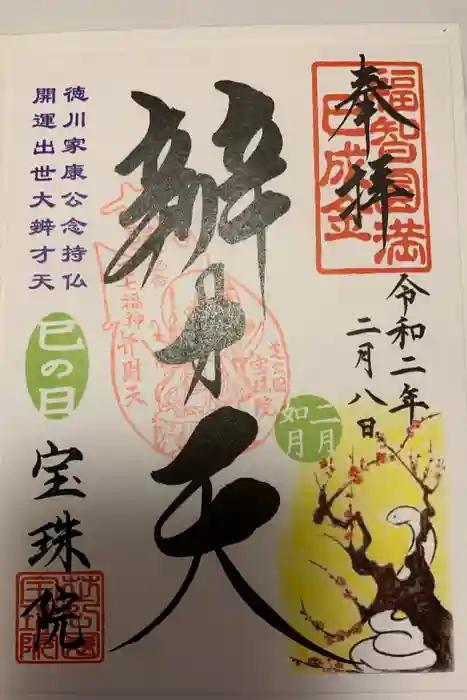 奉拝
福智円満
巳成金
令和二年
二月八日
辨才天
七福神
弁財天
芝公園
宝珠院
徳川家康公念持仏
開運出世大辨才天
巳の日
二月
如月
宝珠院